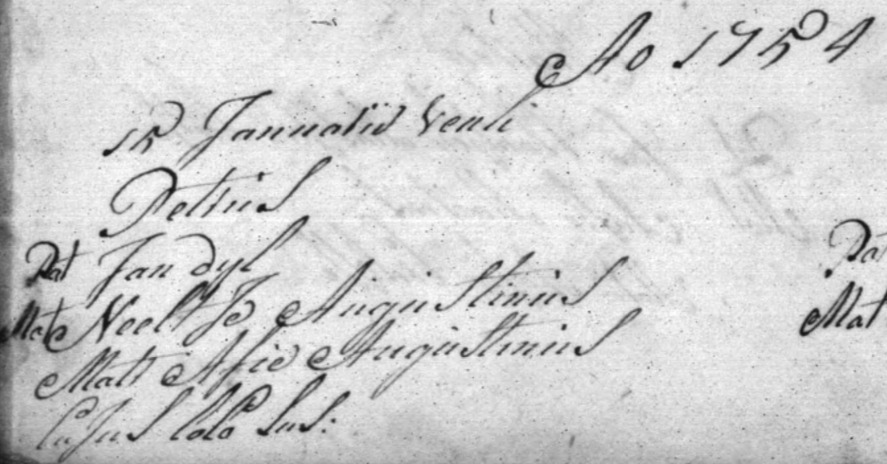 Ao 1754
15 Januarii Venli
Petrus
Pat Jan dyl
Mat Neeltje Augustinus
Matt Afie Augustinus
Cujus loco sus:
Pat
Mat